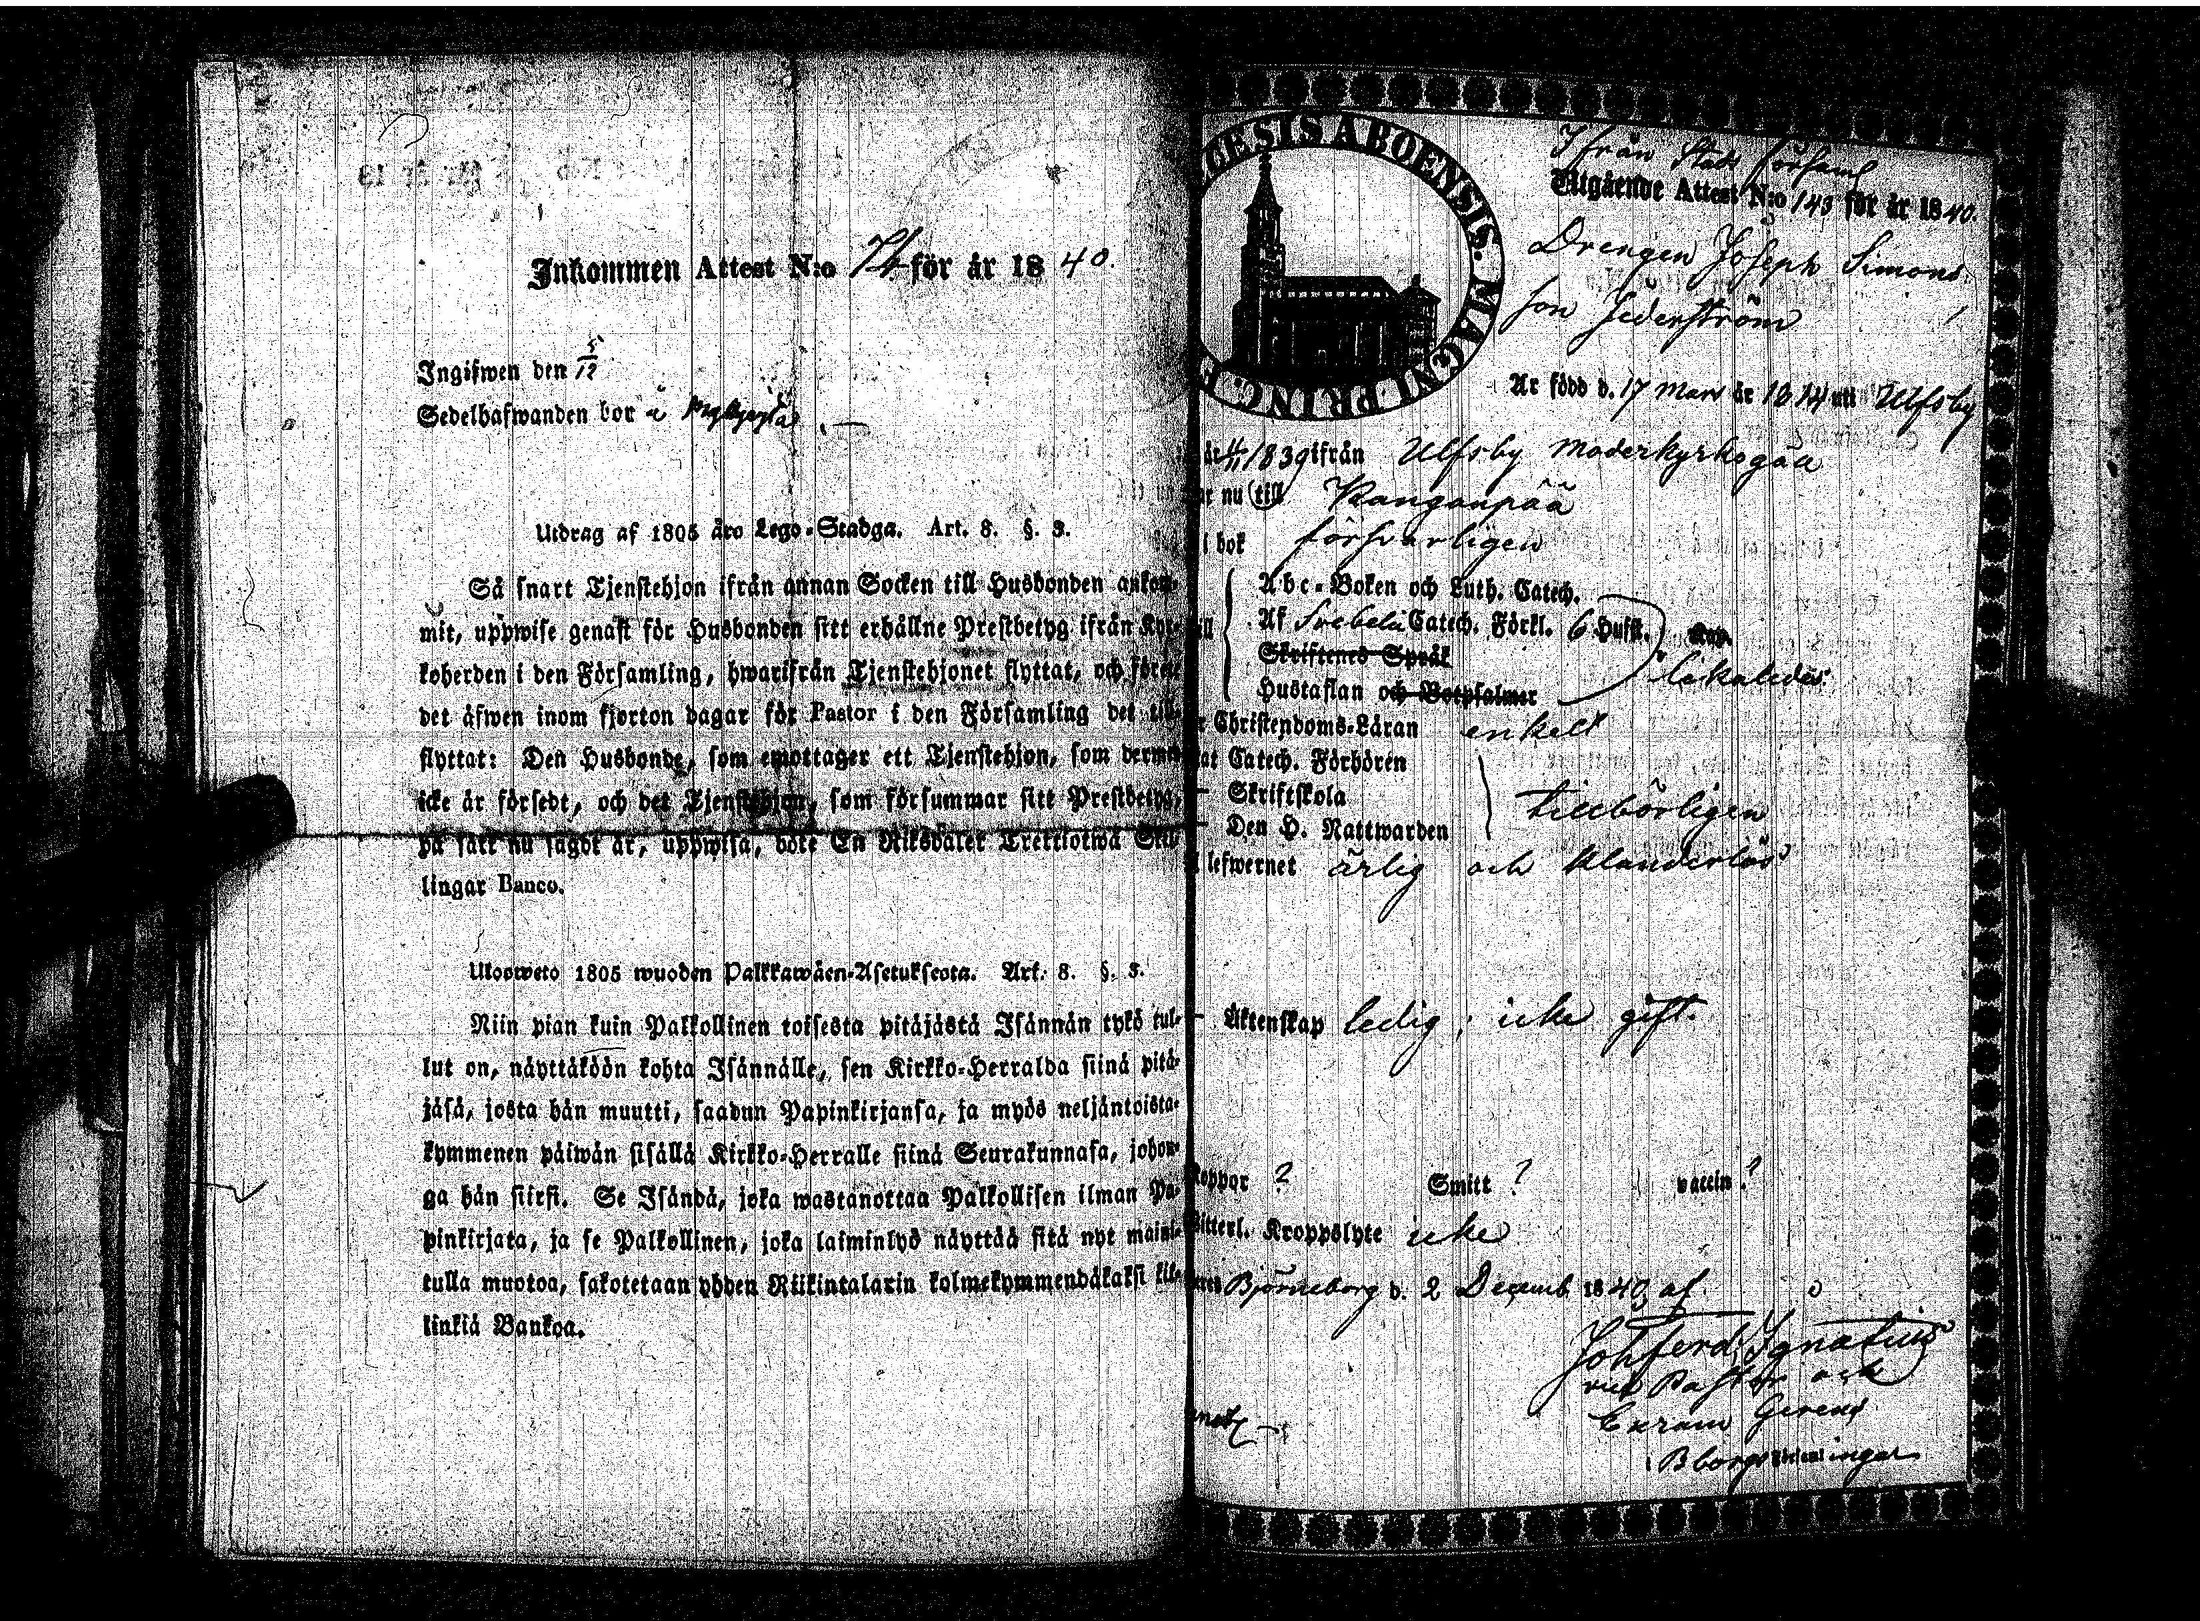 Inkommen Attest N:o 74 för år 1840.
Ingifwen den 5/12
Sedelhafwanden bor i
Utdrag af 1805 åro Lego-Stadga. Art. 8. §. 3.
Så snart Tjenstehjon ifrån annan Socken till Husbonden ankom-
mit, uppwise genast för Husbonden sitt erhållne Prestbetyg ifrån Kyr-
koherden i den Församling, hwarifrån Tjenstehjonet flyttat, och förete
det äfwen inom fjorton dagar för Pastor i den Församling det till-
flyttat: Den Husbonde, som emottager ett Tjenstehjon, som dermed
icke är försedt, och det Tjenstehjon, som försummar sitt Prestbetyg,
på sätt nu sagdt är, uppwisa, böte En Riksdaler Trettiotwå Skil-
lingar Banco.
Ulosweto 1805 wuoden Palkkawäen-Asetuksesta. Art. 8. §. 3.
Niin pian kuin Palkollinen toisesta pitäjästä Isännän tykö tul-
lut on, näyttäköön kohta Isännälle, sen Kirkko-Herralda siinä pitä-
jäsä, josta hän muutti, saadun Papinkirjansa, ja myös neljäntoista-
kymmenen päiwän sisällä Kirkko-Herralle siinä Seurakunnasa, johon-
ga hän siirsi. Se Isändä, joka wastanottaa Palkollisen ilman Pa-
pinkirjata, ja se Palkollinen, joka laiminlyö näyttää sitä nyt maini-
tulla muotoa, sakotetaan yhden Riikintalarin kolmekymmendäkaksi kil-
linkiä Bankoa.
CESIS ABOENSIS. MAGNI PRINC. F
Ifrån Stads församl
Utgående Attest N:o 143 för år 1840.
Drengen Joseph Simons
son Sederström
Är född d. 17 Mars år 1814 uti Ulfsby
år 1839 ifrån Ulfsby moderkyrkogäll
nu till Kanganpää
i bok försvarligen
Abc-Boken och Luth. Catech.
Af Svebelii Catech. Förkl. 6 Hufst. Kap.
Skriftenes Språk
likaledes
Hustaflan och Botpsalmer
Christendoms-Läran enkelt
Catech. Förhören
Skriftskola
tillbörligen
Den H. Nattwarden
lefwernet ärlig och klanderlös
Äktenskap ledig, icke gift.
Koppor ? Smitt ? vaccin ?
Kroppslyte icke
Björneborg d. 2 Decemb 1840 af
Joh ferd Ignatius
vice Pastor och
Curam Gerens
i Bborgs församlingar